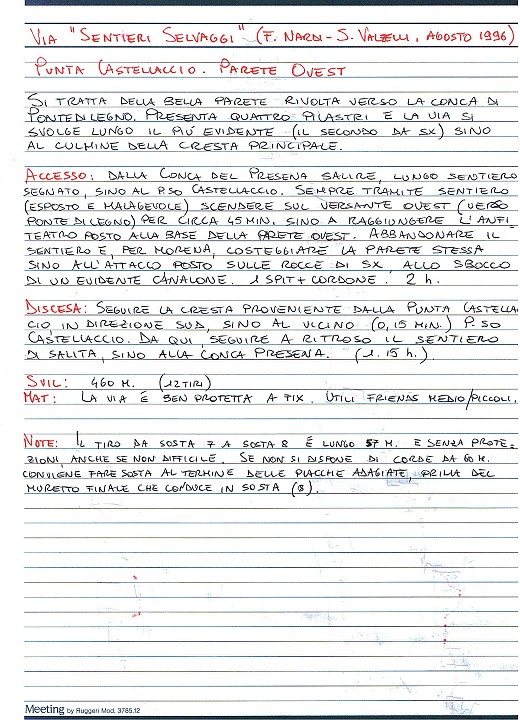 VIA "SENTIERI SELVAGGI" (F. NARDI - S. VALZELLI, AGOSTO 1996)
PUNTA CASTELLACCIO. PARETE OVEST
SI TRATTA DELLA BELLA PARETE RIVOLTA VERSO LA CONCA DI
PONTEDILEGNO. PRESENTA QUATTRO PILASTRI E LA VIA SI
SVOLGE LUNGO IL PIÚ EVIDENTE (IL SECONDO DA SX) SINO
AL CULMINE DELLA CRESTA PRINCIPALE.
ACCESSO: DALLA CONCA DEL PRESENA SALIRE, LUNGO SENTIERO
SEGNATO, SINO AL P.SO CASTELLACCIO. SEMPRE TRAMITE SENTIERO
(ESPOSTO E MALAGEVOLE) SCENDERE SUL VERSANTE OVEST (VERSO
PONTE DI LEGNO) PER CIRCA 45 MIN. SINO A RAGGIUNGERE L'ANFI-
TEATRO POSTO ALLA BASE DELLA PARETE OVEST. ABBANDONARE IL
SENTIERO E, PER MORENA, COSTEGGIARE LA PARETE STESSA
SINO ALL'ATTACCO POSTO SULLE ROCCE DI SX, ALLO SBOCCO
DI UN EVIDENTE CANALONE. 1 SPIT + CORDONE. 2 h.
DISCESA: SEGUIRE LA CRESTA PROVENIENTE DALLA PUNTA CASTELLA
CIO, IN DIREZIONE SUD, SINO AL VICINO (0,15 MIN.) P.SO
CASTELLACCIO. DA QUI, SEGUIRE A RITROSO IL SENTIERO
DI SALITA, SINO ALLA CONCA PRESENA. (1.15 h.)
SVIL: 460 M. (12 TIRI)
MAT: LA VIA É BEN PROTETTA A FIX. UTILI FRIENDS MEDIO/PICCOLI.
NOTE: IL TIRO DA SOSTA 7 A SOSTA 8 É LUNGO 57 M. E SENZA PROTE-
ZIONI, ANCHE SE NON DIFFICILE. SE NON SI DISPONE DI CORDE DA 60 M.
CONVIENE FARE SOSTA AL TERMINE DELLE PLACCHE ADAGIATE, PRIMA DEL
MURETTO FINALE CHE CONDUCE IN SOSTA (8).
Meeting by Ruggeri Mod. 3785.12